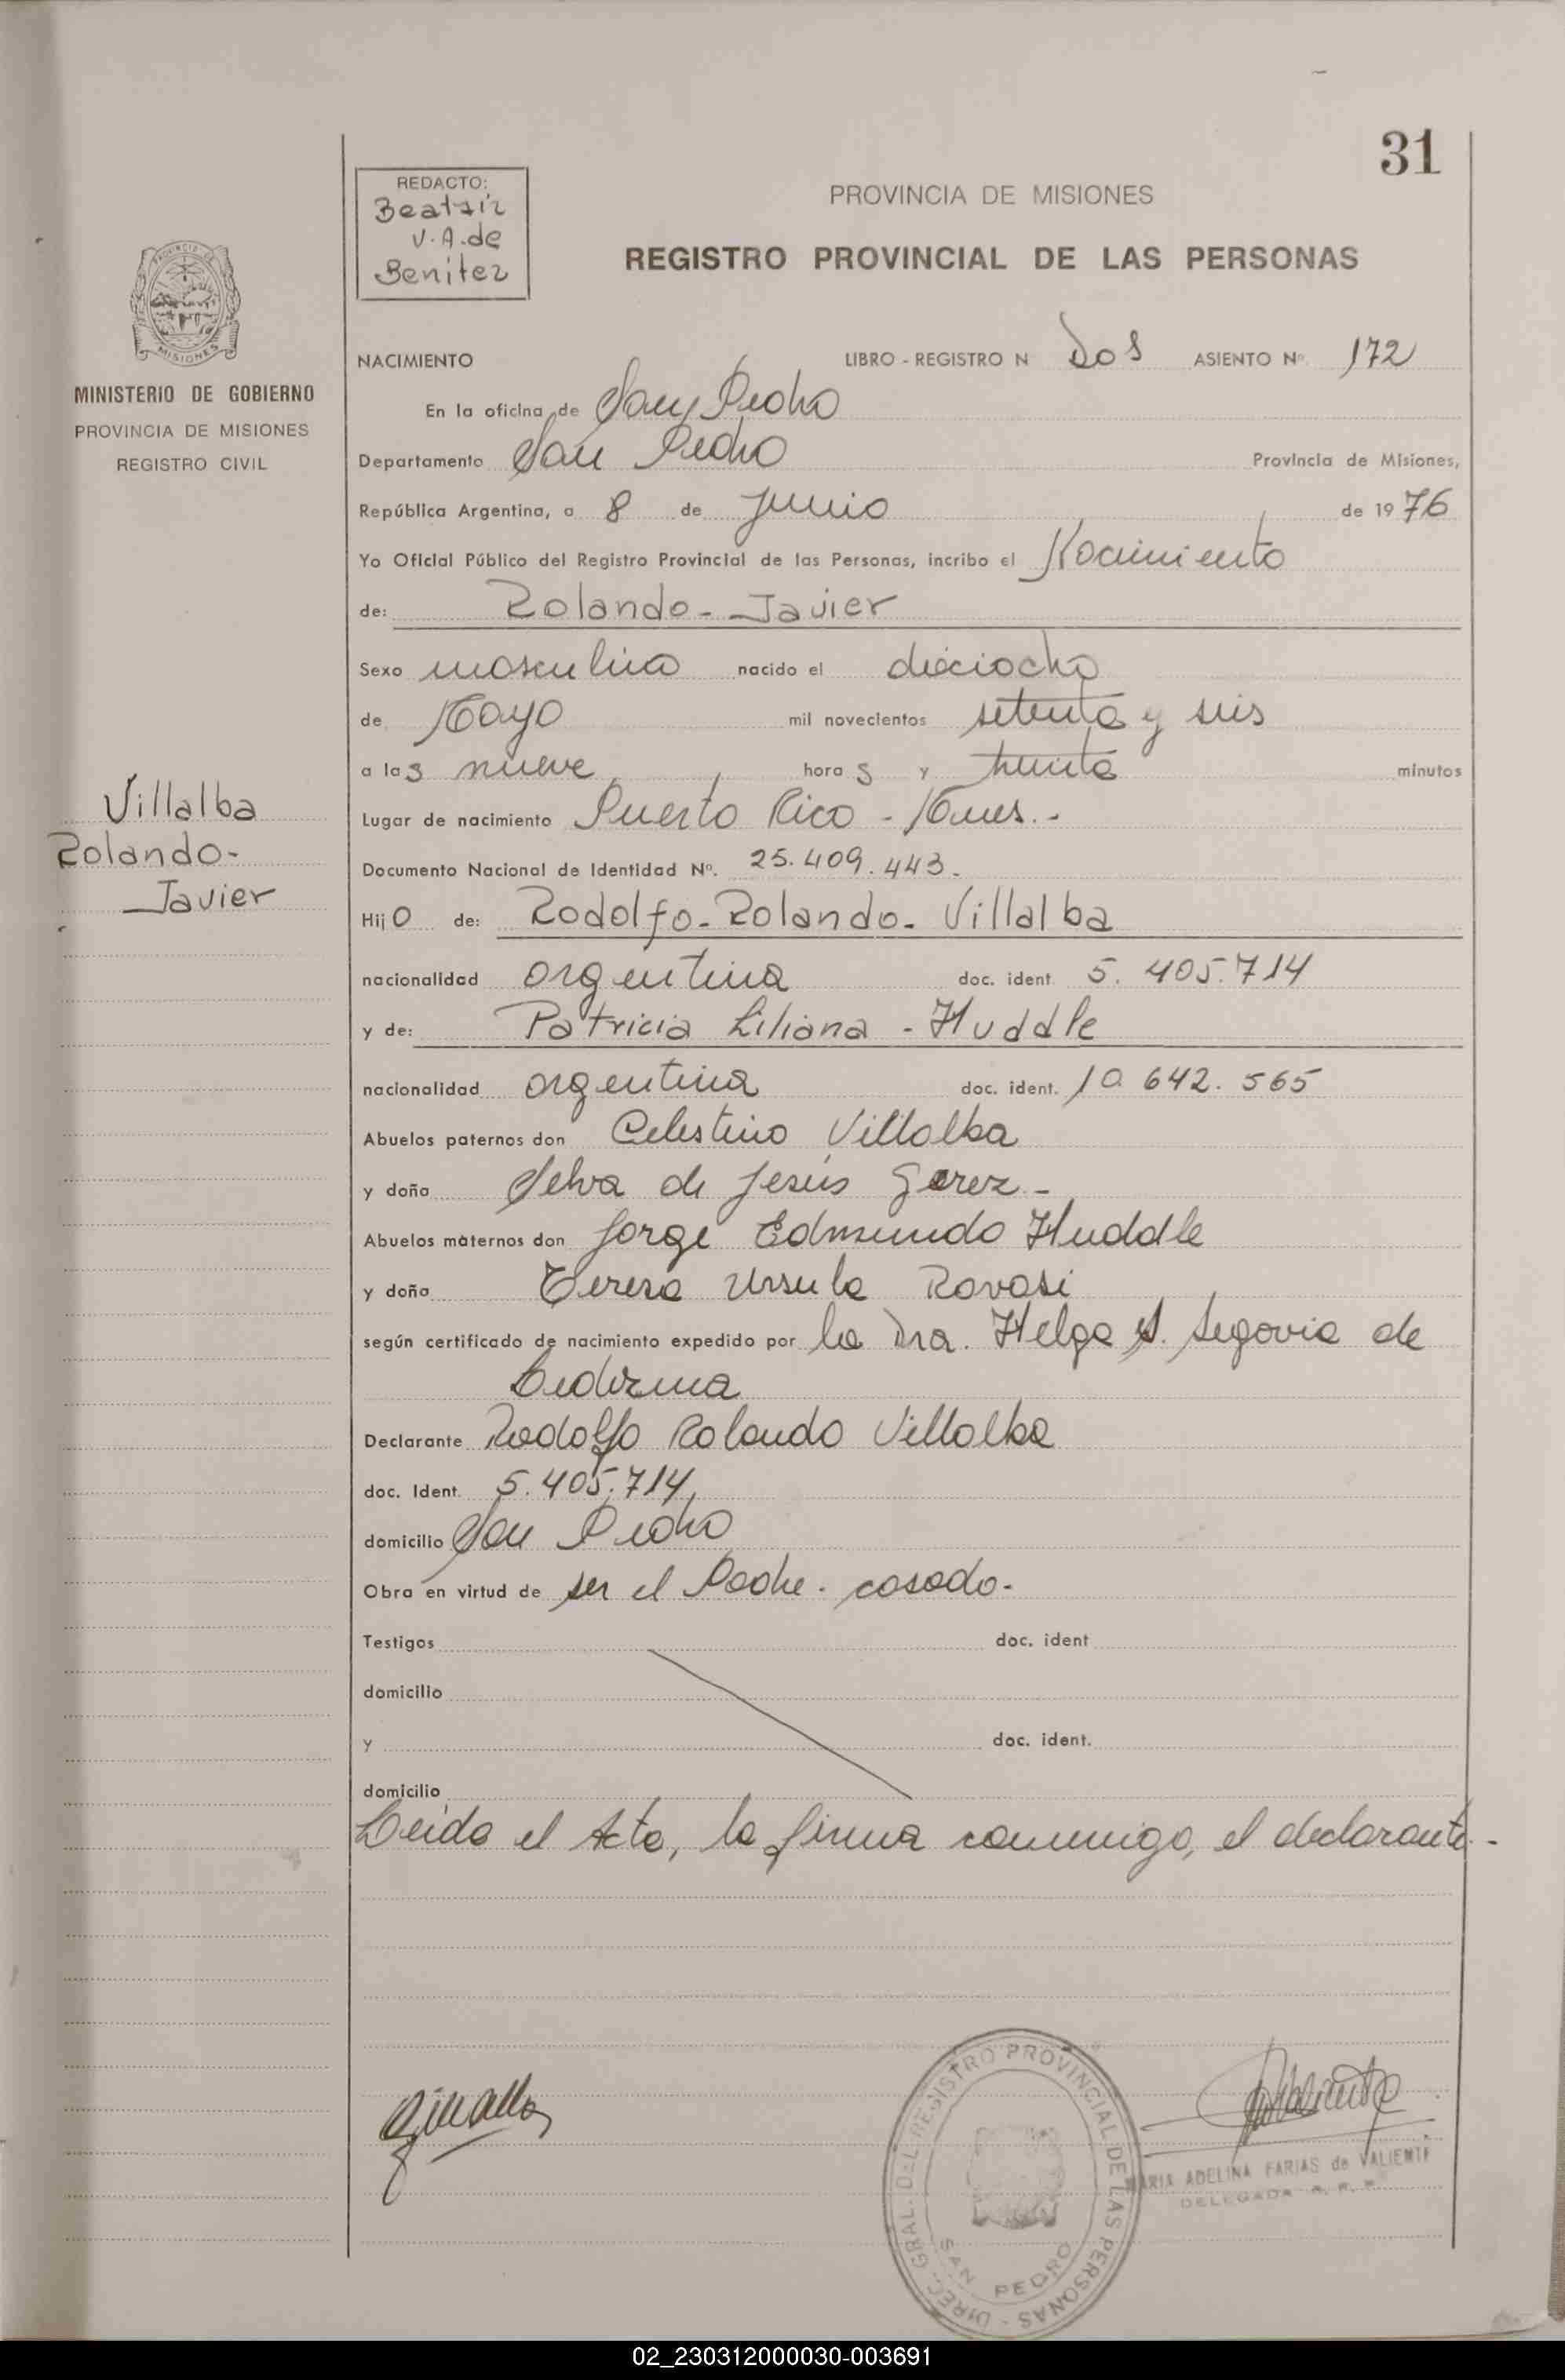 31
REDACTO:
Beatriz
V. A. de
Benitez
PROVINCIA DE MISIONES
REGISTRO PROVINCIAL DE LAS PERSONAS
MISIONES
MINISTERIO DE GOBIERNO
PROVINCIA DE MISIONES
REGISTRO CIVIL
NACIMIENTO LIBRO - REGISTRO N Dos ASIENTO Nº 172
En la oficina de San Pedro
Departamento San Pedro Provincia de Misiones,
República Argentina, a 8 de Junio de 1976
Yo Oficial Público del Registro Provincial de las Personas, incribo el Nacimiento
de: Rolando - Javier
Sexo masculino nacido el dieciocho
de Mayo mil novecientos setenta y seis
a las nueve horas y treinta minutos
Lugar de nacimiento Puerto Rico - Mnes. -
Documento Nacional de Identidad Nº. 25.409.443.
Villalba
Rolando-
Javier
Hijo de: Rodolfo - Rolando - Villalba
nacionalidad argentina doc. ident. 5.405.714
y de: Patricia Liliana - Huddle
nacionalidad argentina doc. ident. 10.642.565
Abuelos paternos don Celestino Villalba
y doña Selva de Jesús Gerez -
Abuelos maternos don Jorge Edmundo Huddle
y doña Teresa Ursula Ravasi
según certificado de nacimiento expedido por la Dra. Helga A. Segovia de
Declarante Rodolfo Rolando Villalba
doc. Ident. 5.405.714,
domicilio San Pedro
Obra en virtud de ser el Padre - casado -
Testigos doc. ident
domicilio
y doc. ident.
domicilio
Leida el Acta, la firma conmigo, el declarante. -
DIREC. GRAL. DEL REGISTRO PROVINCIAL DE LAS PERSONAS -
SAN PEDRO
MARIA ADELINA FARIAS de VALIENTE
DELEGADA R. P. P.
02_230312000030-003691